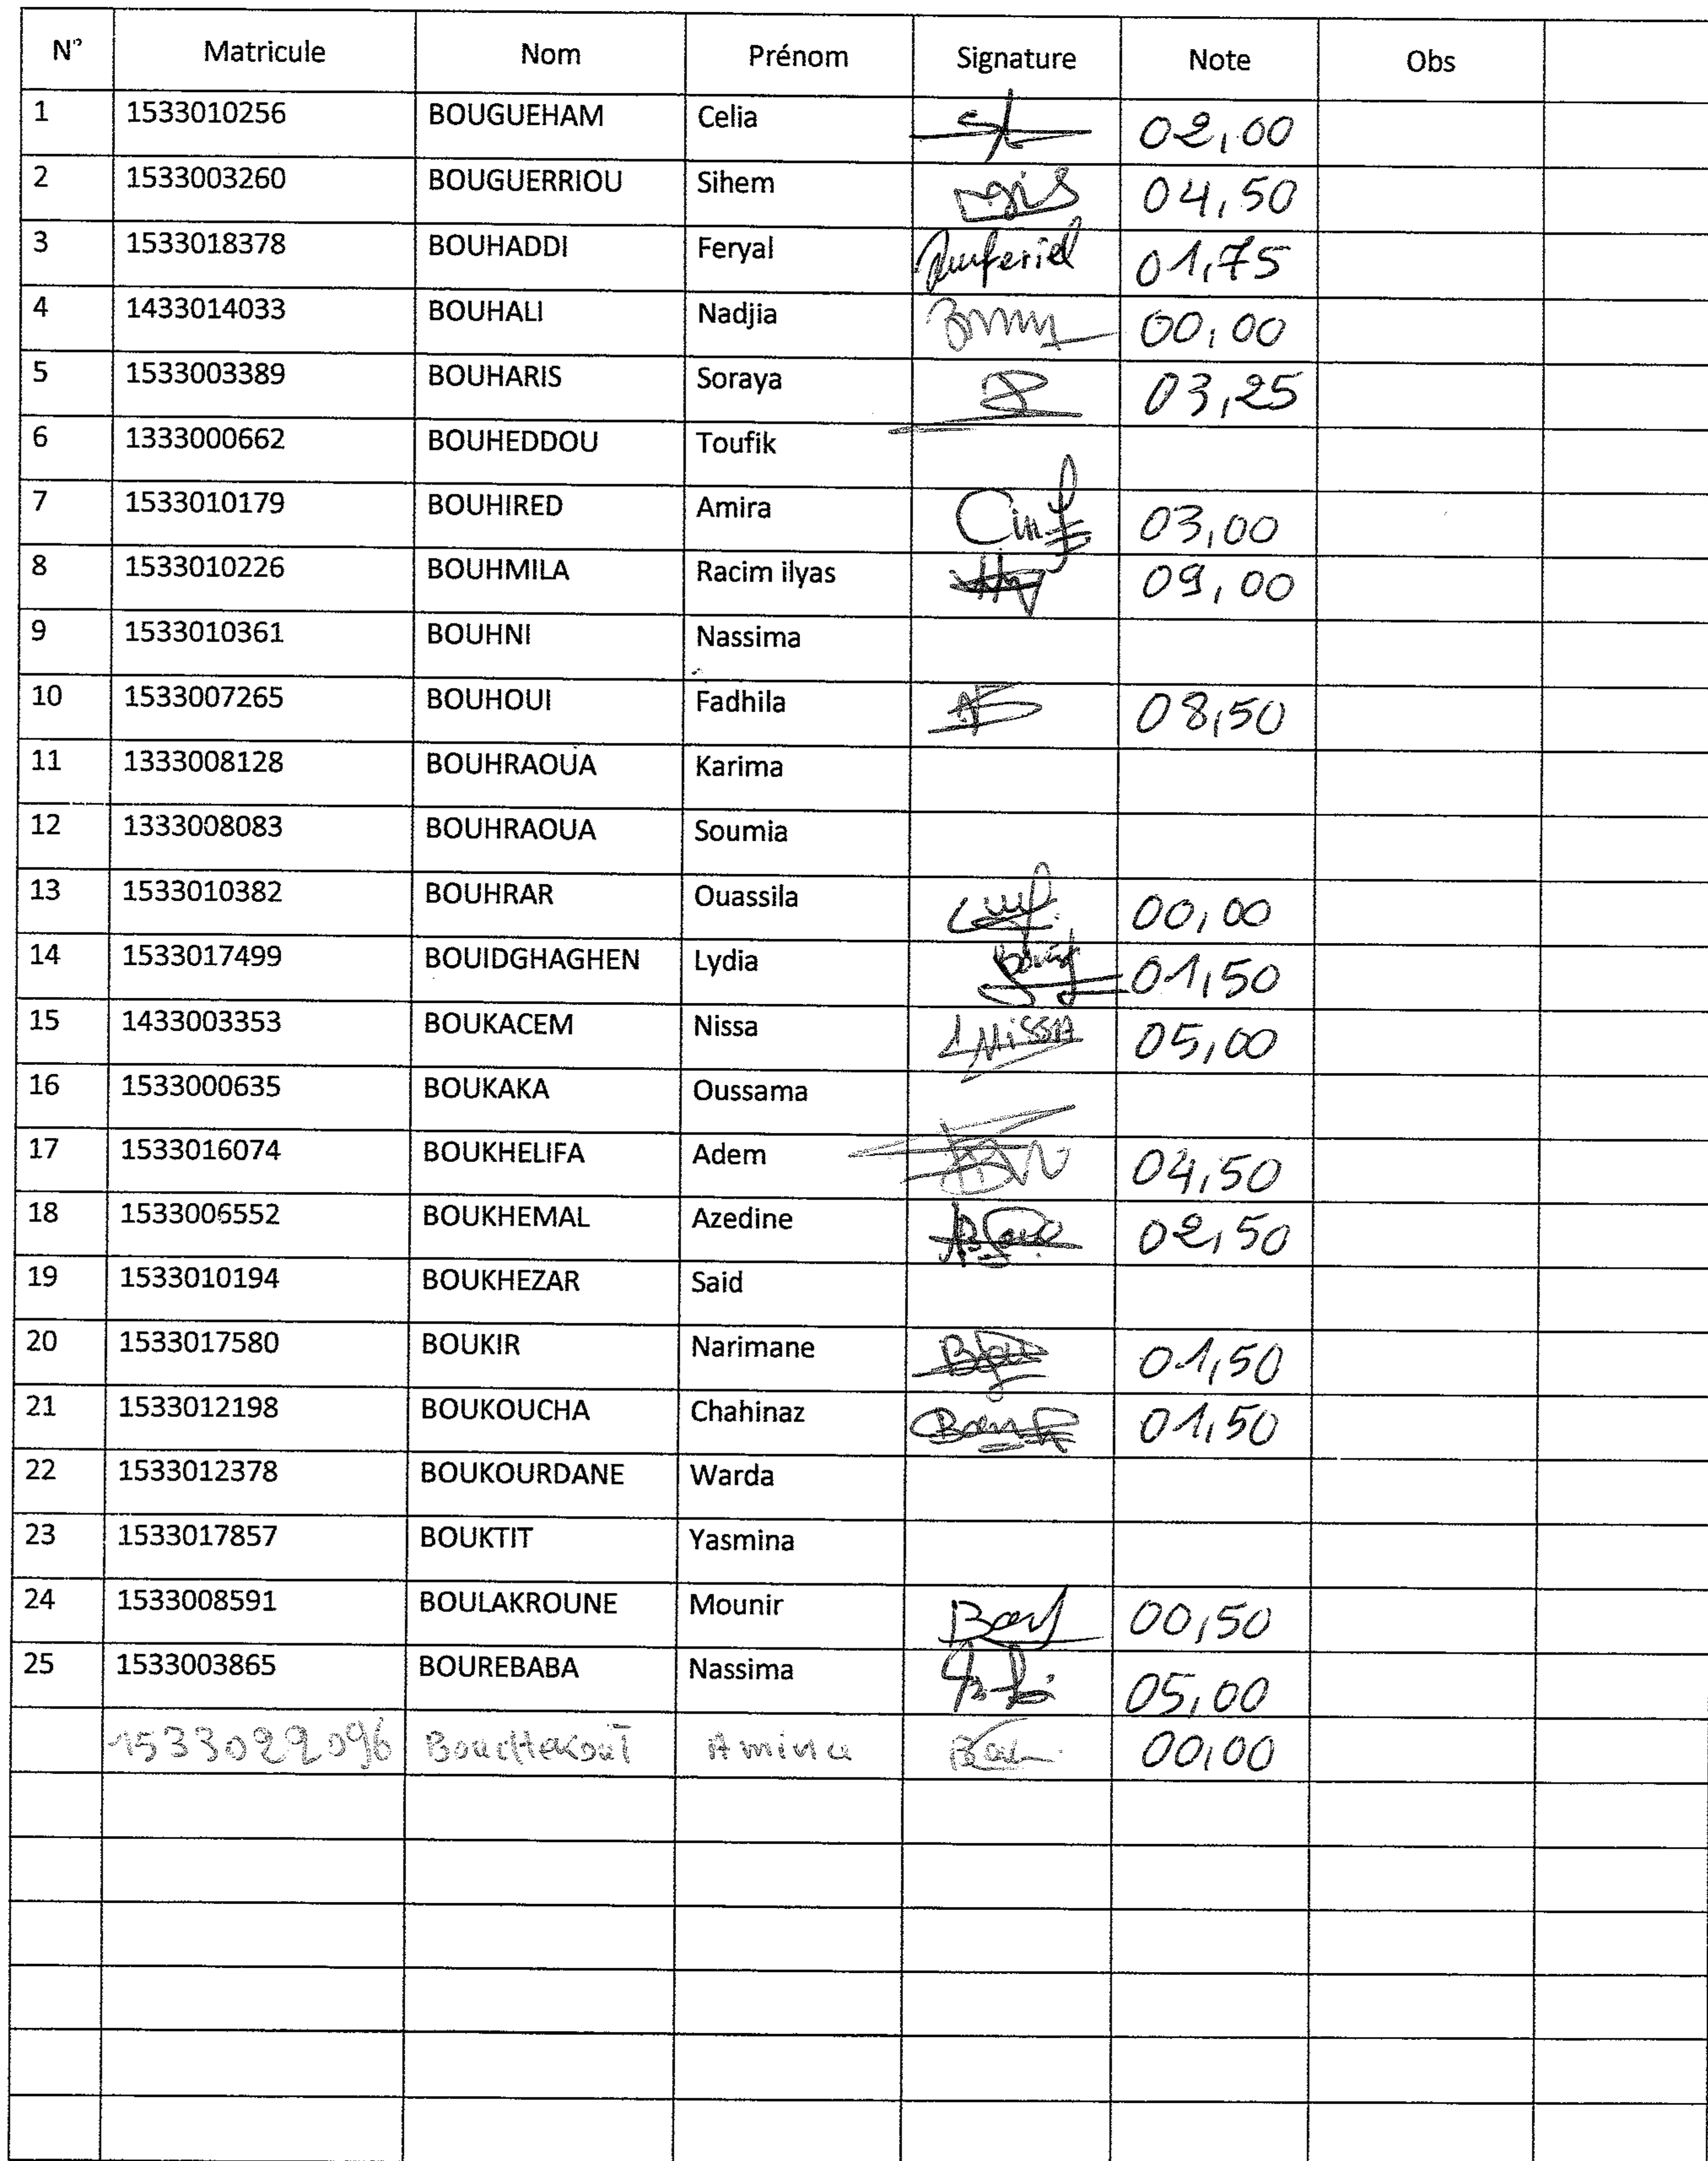 N° Matricule Nom Prénom Signature Note Obs
1 1533010256 BOUGUEHAM Celia 02,00
2 1533003260 BOUGUERRIOU Sihem 04,50
3 1533018378 BOUHADDI Feryal 01,75
4 1433014033 BOUHALI Nadjia 00,00
5 1533003389 BOUHARIS Soraya 03,25
6 1333000662 BOUHEDDOU Toufik
7 1533010179 BOUHIRED Amira 03,00
8 1533010226 BOUHMILA Racim ilyas 09,00
9 1533010361 BOUHNI Nassima
10 1533007265 BOUHOUI Fadhila 08,50
11 1333008128 BOUHRAOUA Karima
12 1333008083 BOUHRAOUA Soumia
13 1533010382 BOUHRAR Ouassila 00,00
14 1533017499 BOUIDGHAGHEN Lydia 01,50
15 1433003353 BOUKACEM Nissa 05,00
16 1533000635 BOUKAKA Oussama
17 1533016074 BOUKHELIFA Adem 04,50
18 1533006552 BOUKHEMAL Azedine 02,50
19 1533010194 BOUKHEZAR Said
20 1533017580 BOUKIR Narimane 01,50
21 1533012198 BOUKOUCHA Chahinaz 01,50
22 1533012378 BOUKOURDANE Warda
23 1533017857 BOUKTIT Yasmina
24 1533008591 BOULAKROUNE Mounir 00,50
25 1533003865 BOUREBABA Nassima 05,00
1533022096 Amina 00,00